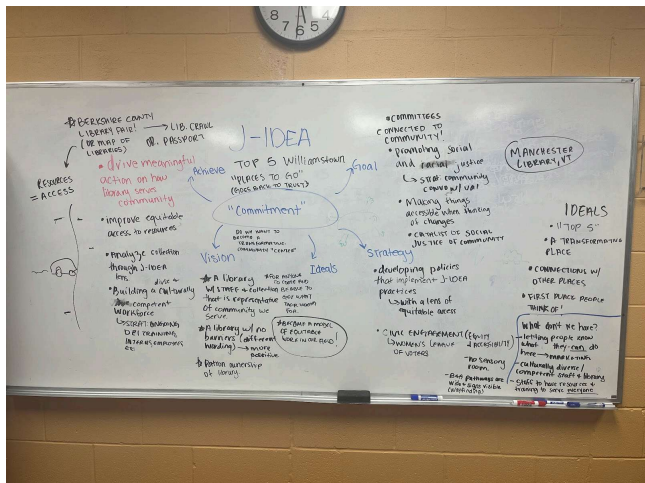 8
7
6
5
☆ BERKSHIRE COUNTY
LIBRARY FAIR! → LIB. CRAWL
(OR MAP OF
LIBRARIES) OR. PASSPORT
RESOURCES
= ACCESS
• drive meaningful
action on how
library serves
community
• improve equitable
access to resources
• Analyze collection
through J-IDEA
lens
• Building a culturally
diverse +
competent
workforce
↳ STRAT: ONGOING
DEI TRAINING
J-IDEA
Achieve
TOP 5 Williamstown
"PLACES TO GO"
(GOES BACK TO TRUST)
Goal
"Commitment"
DO WE WANT TO
BECOME A
TRANSFORMATIVE
COMMUNITY "CENTER"
Vision
Ideals
Strategy
☆ A library
w/ STAFF + collection
that is representative
of community we
serve
* FOR ANYONE
TO COME AND
BE ABLE TO
GET WHAT
THEY
FOR
☆ A library w/ no
barriers (different
funding) → more
additive
☆ Patron ownership
of library
☆ BECOME A MODEL
OF EQUITABLE
WORK IN OUR AREA!
• COMMITTEES
CONNECTED TO
COMMUNITY!
• promoting social
and racial justice
↳ STRAT: community
convo w/ VPA?
• Making things
accessible when thinking
of changes
• CATALIST OF SOCIAL
JUSTICE OF COMMUNITY
• developing policies
that implement J-IDEA
practices
↳ with a lens of
equitable access
• CIVIC ENGAGEMENT (EQUITY +
ACCESSIBILITY)
↳ WOMEN'S LEAGUE
OF VOTERS
- NO SENSORY
ROOM
- pathways are
wide + signs visible
(wayfinding)
MANCHESTER
LIBRARY, VT
IDEALS
• "TOP 5"
• A TRANSFORMATIVE
PLACE
• CONNECTIONS W/
OTHER PLACES
• FIRST PLACE PEOPLE
THINK OF!
What don't we have?
- letting people know
what they can do
here → MARKETING
- culturally diverse/
competent staff + library
- Staff to have resources +
training to serve everyone